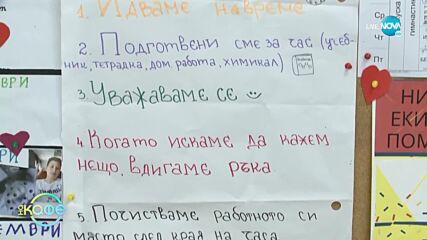 1. Идваме навреме
2. Подготвени сме за час (учеб-
ник, тетрадка, дом. работа, химикал)
3. Уважаваме се
4. Когато искаме да кажем
нещо, вдигаме ръка.
5 Почистваме работното си
място след края на часа
LIVE NOVA
Ср
гимнастич
ВРИ
ЕМВРИ
НИ
ЕКИ
ПОМ
на КАФЕ